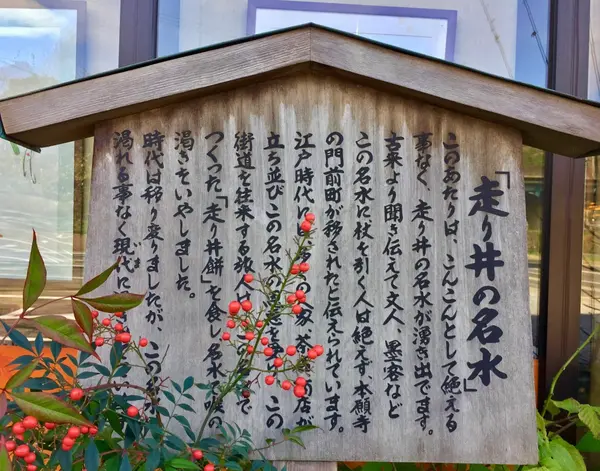 「走り井の名水」
このあたりは、こんこんとして絶える
事なく、走り井の名水が湧き出でます。
古来より聞き伝えて文人、墨客など
この名水に杖を引く人は絶えず、本願寺
の門前町が移されたと伝えられています。
江戸時代に 家、茶 店が
立ち並びこの名水の この
街道を往来する旅人 で
つくった「走り井餅」を食し、名水で喉の
渇きをいやしました。
時代は移り変りましたが、この
涸れる事なく現代に